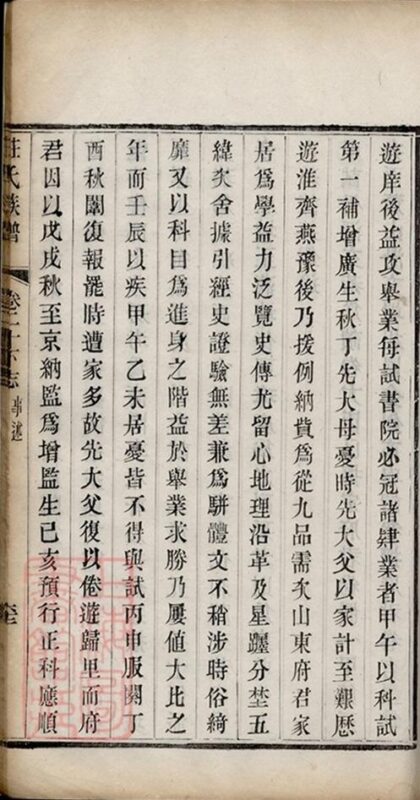 遊庠後益攻舉業每試書院必冠諸肄業者甲午以科試
第一補增廣生秋丁先大母憂時先大父以家計至艱歷
遊淮齊燕豫後乃援例納貲為從九品需次山東府君家
居為學益力泛覽史傳尤留心地理沿革及星躔分埜五
緯次舍據引經史證驗無差兼為駢體文不稍涉時俗綺
靡又以科目為進身之階益於舉業求勝乃屢值大比之
年而壬辰以疾甲午乙未居憂皆不得與試丙申服闋丁
酉秋闈復報罷時遭家多故先大父復以倦遊歸里而府
君因以戊戌秋至京納監為增監生已亥預行正科應順
莊氏族譜 卷二十下志 事述